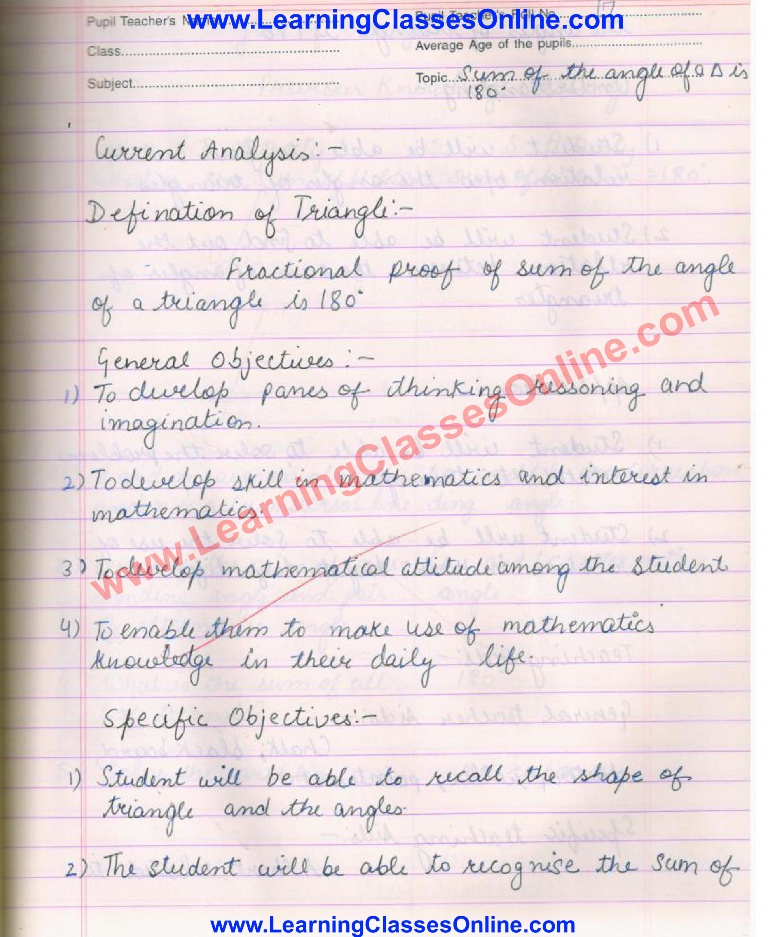 www.LearningClassesOnline.com
Pupil Teacher's Name
Pupil Teacher's Roll No. 17
Class
Average Age of the pupils
Subject
Topic Sum of the angle of a Δ is
180°
Current Analysis:-
Defination of Triangle:-
Fractional proof of sum of the angle
of a triangle is 180°
General Objectives:-
1) To develop panes of thinking ressoning and
imagination.
2) To develop skill in mathematics and interest in
mathematics.
www.LearningClassesOnline.com
3) To develop mathematical attitude among the student
4) To enable them to make use of mathematics
knowledge in their daily life.
Specific Objectives:-
1) Student will be able to recall the shape of
triangle and the angles.
2) The student will be able to recognise the sum of
www.LearningClassesOnline.com